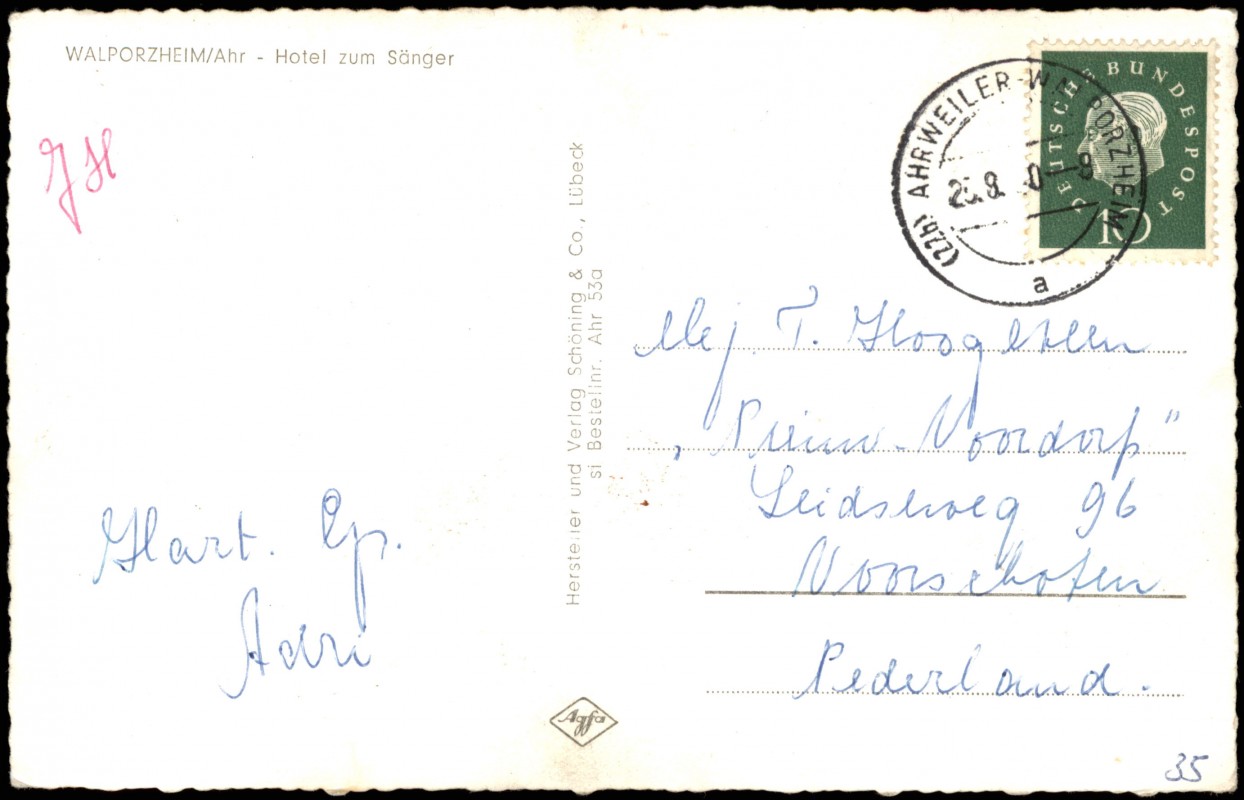 WALPORZHEIM/Ahr - Hotel zum Sänger
JH
Hart. Gr.
Adri
Hersteller und Verlag Schöning & Co., Lübeck
si Bestellnr. Ahr 53a
Agfa
DEUTSCHE BUNDESPOST
10
(22b) AHRWEILER-WALPORZHEIM
8
a
Mej. T. Hoogeveen
„ Noordorp"
Leidseweg 96
Voorschoten
Nederland.
35